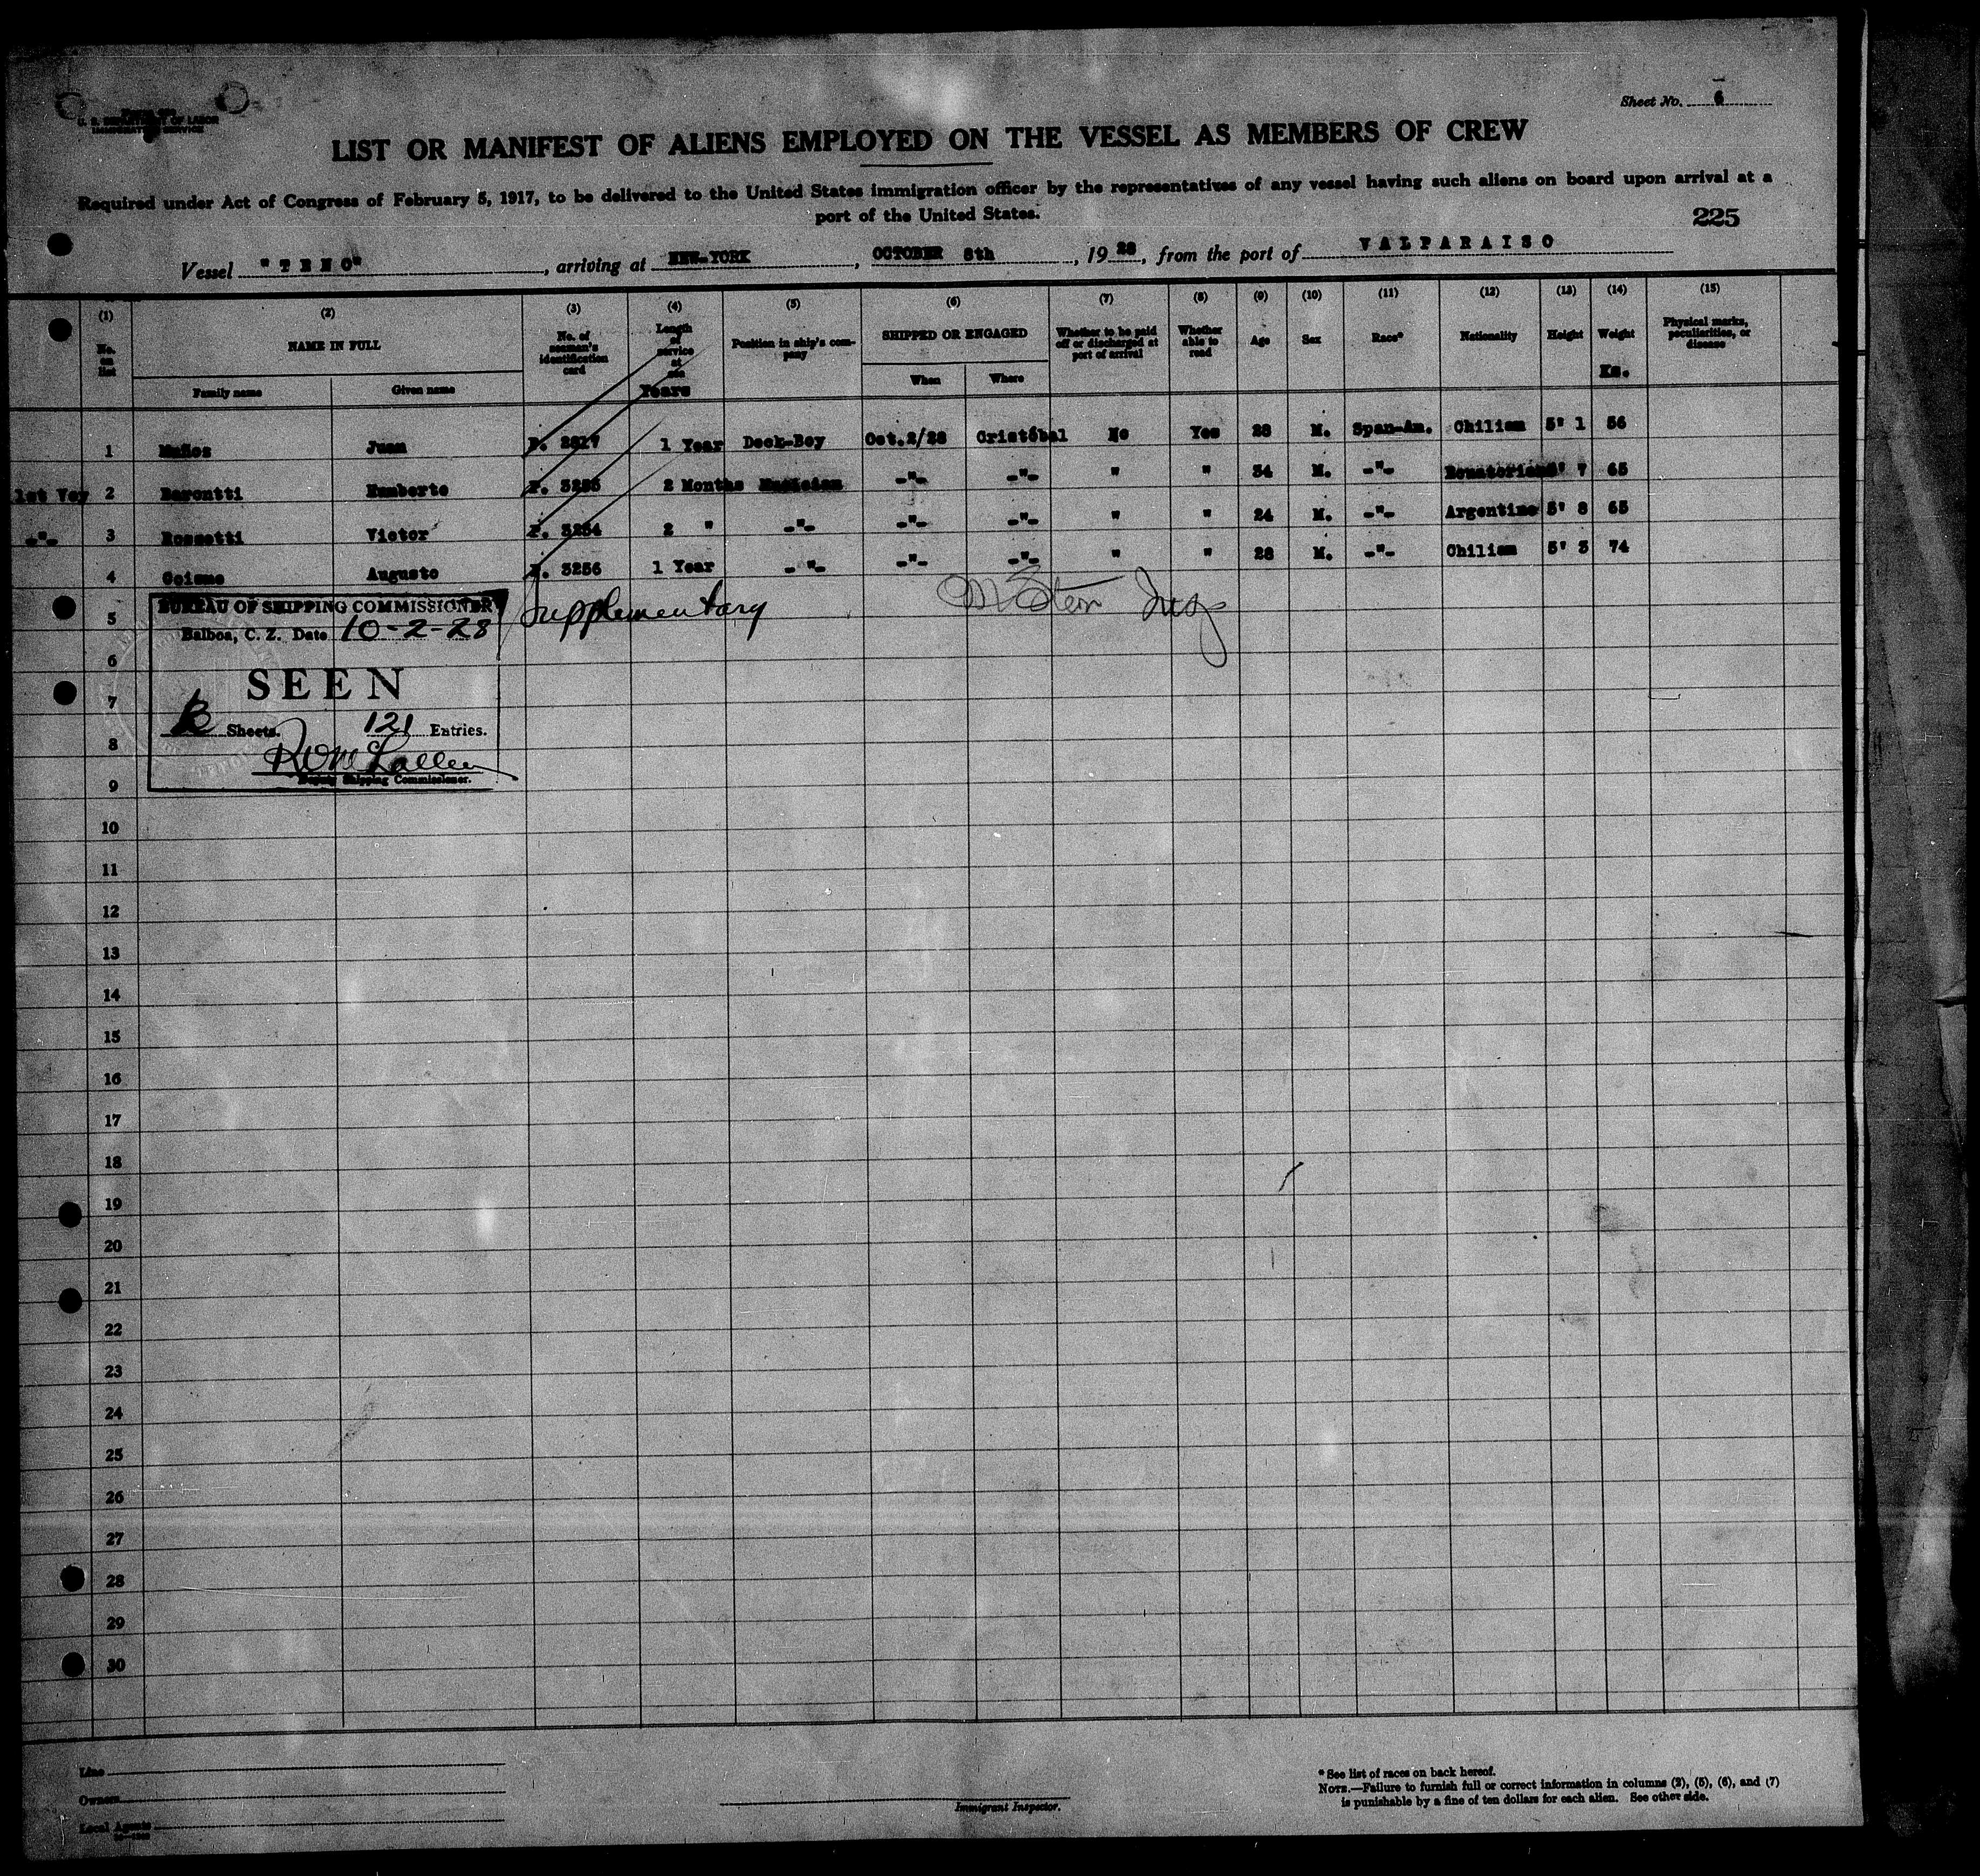 Sheet No. 6
U. S. DEPARTMENT OF LABOR
IMMIGRATION SERVICE
LIST OR MANIFEST OF ALIENS EMPLOYED ON THE VESSEL AS MEMBERS OF CREW
Required under Act of Congress of February 5, 1917, to be delivered to the United States immigration officer by the representatives of any vessel having such aliens on board upon arrival at a
port of the United States.
225
Vessel "TENO", arriving at NEW-YORK, OCTOBER 8th, 1928, from the port of VALPARAISO
(1) (2) (3) (4) (5) (6) (7) (8) (9) (10) (11) (12) (13) (14) (15)
No. on list NAME IN FULL No. of seaman's identification card Length of service at sea Position in ship's company SHIPPED OR ENGAGED Whether to be paid off or discharged at port of arrival Whether able to read Age Sex Race* Nationality Height Weight Physical marks, peculiarities, or disease
Family name Given name Years When Where Ks.
1 Muñoz Juan P. 2817 1 Year Deck-Boy Oct.2/28 Cristóbal No Yes 28 M. Span-Am. Chilian 5' 1 56
1st Voy 2 Barontti Humberto 2 Months Musician -"- -"- " " 34 M. -"- Ecuatorian 5' 7 65
-"- 3 Rossetti Victor P. 3254 2 " -"- -"- -"- " " 24 M. -"- Argentine 5' 8 65
4 Augusto 3256 1 Year -"- -"- -"- " " 28 M. -"- Chilian 5' 3 74
5 Supplementary
BUREAU OF SHIPPING COMMISSIONER
Balboa, C. Z. Date 10-2-28
SEEN
Sheets. 121 Entries.
Deputy Shipping Commissioner.
6
7
8
9
10
11
12
13
14
15
16
17
18
19
20
21
22
23
24
25
26
27
28
29
30
Line
Owners
Local Agents
Immigrant Inspector.
* See list of races on back hereof.
NOTE.—Failure to furnish full or correct information in columns (2), (5), (6), and (7)
is punishable by a fine of ten dollars for each alien. See other side.